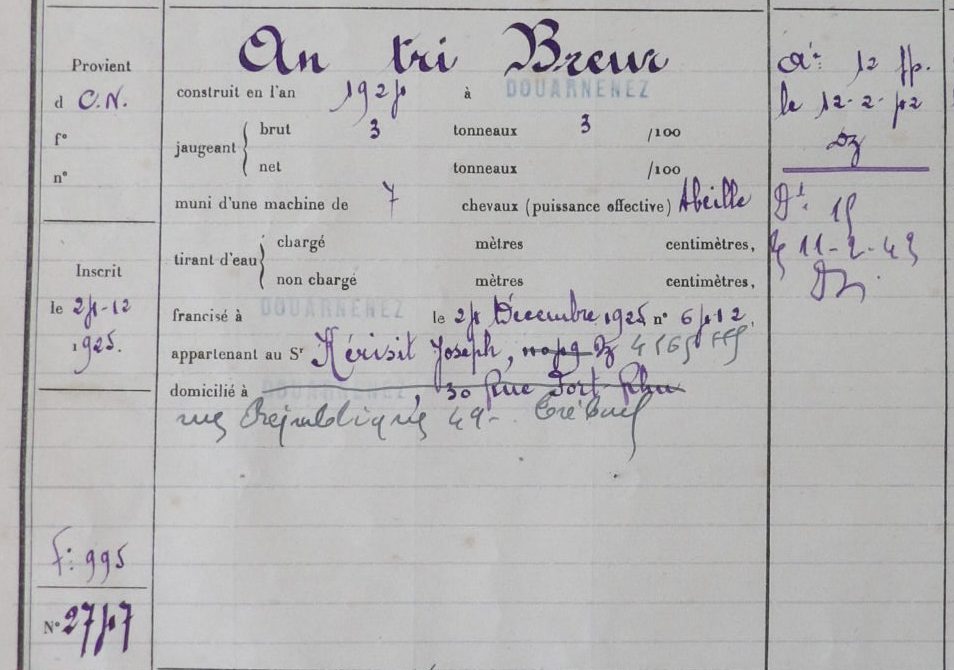 An tri Breur
Provient
d C.N.
f°
n°
construit en l'an à DOUARNENEZ
jaugeant brut 3 tonneaux 3 /100
net tonneaux /100
muni d'une machine de 7 chevaux (puissance effective) Abeille
tirant d'eau chargé mètres centimètres,
non chargé mètres centimètres,
francisé à DOUARNENEZ le Décembre 1925 n°
appartenant au Sr Kérisit Joseph,
domicilié à DOUARNENEZ, 30 Rue Port Rhu
rue République 49 - Tréboul
Inscrit
le
1925.
f: 995
N°
12
le 12-2-
Dz
11-2-
Dz